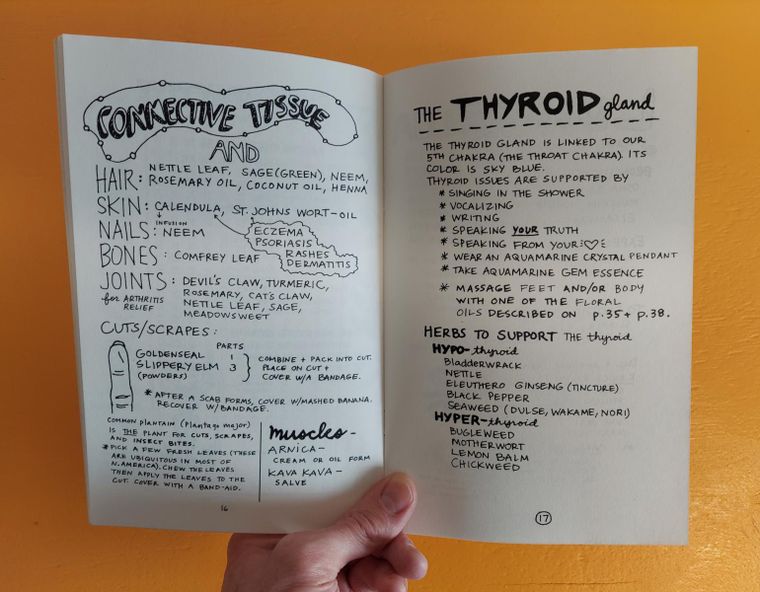 CONNECTIVE TISSUE
AND
HAIR: NETTLE LEAF, SAGE (GREEN), NEEM,
ROSEMARY OIL, COCONUT OIL, HENNA
SKIN: CALENDULA, ST. JOHNS WORT-OIL
INFUSION
NAILS: NEEM
ECZEMA
PSORIASIS
RASHES
DERMATITIS
BONES: COMFREY LEAF
JOINTS: DEVIL'S CLAW, TURMERIC,
for ARTHRITIS RELIEF
ROSEMARY, CAT'S CLAW,
NETTLE LEAF, SAGE,
MEADOWSWEET
CUTS/SCRAPES:
PARTS
GOLDENSEAL 1
SLIPPERY ELM 3
(POWDERS)
COMBINE + PACK INTO CUT.
PLACE ON CUT +
COVER W/A BANDAGE.
* AFTER A SCAB FORMS, COVER W/MASHED BANANA.
RECOVER W/BANDAGE.
COMMON PLANTAIN (Plantago major)
IS THE PLANT FOR CUTS, SCRAPES,
AND INSECT BITES.
* PICK A FEW FRESH LEAVES (THESE
ARE UBIQUITOUS IN MOST OF
N. AMERICA). CHEW THE LEAVES
THEN APPLY THE LEAVES TO THE
CUT. COVER WITH A BAND-AID.
Muscles-
ARNICA-
CREAM OR OIL FORM
KAVA KAVA-
SALVE
16
THE THYROID gland
THE THYROID GLAND IS LINKED TO OUR
5TH CHAKRA (THE THROAT CHAKRA). ITS
COLOR IS SKY BLUE.
THYROID ISSUES ARE SUPPORTED BY
* SINGING IN THE SHOWER
* VOCALIZING
* WRITING
* SPEAKING YOUR TRUTH
* SPEAKING FROM YOUR ♡
* WEAR AN AQUAMARINE CRYSTAL PENDANT
* TAKE AQUAMARINE GEM ESSENCE
* MASSAGE FEET AND/OR BODY
WITH ONE OF THE FLORAL
OILS DESCRIBED ON P.35 + P.38.
HERBS TO SUPPORT THE thyroid
HYPO-thyroid
BLADDERWRACK
NETTLE
ELEUTHERO GINSENG (TINCTURE)
BLACK PEPPER
SEAWEED (DULSE, WAKAME, NORI)
HYPER-thyroid
BUGLEWEED
MOTHERWORT
LEMON BALM
CHICKWEED
17